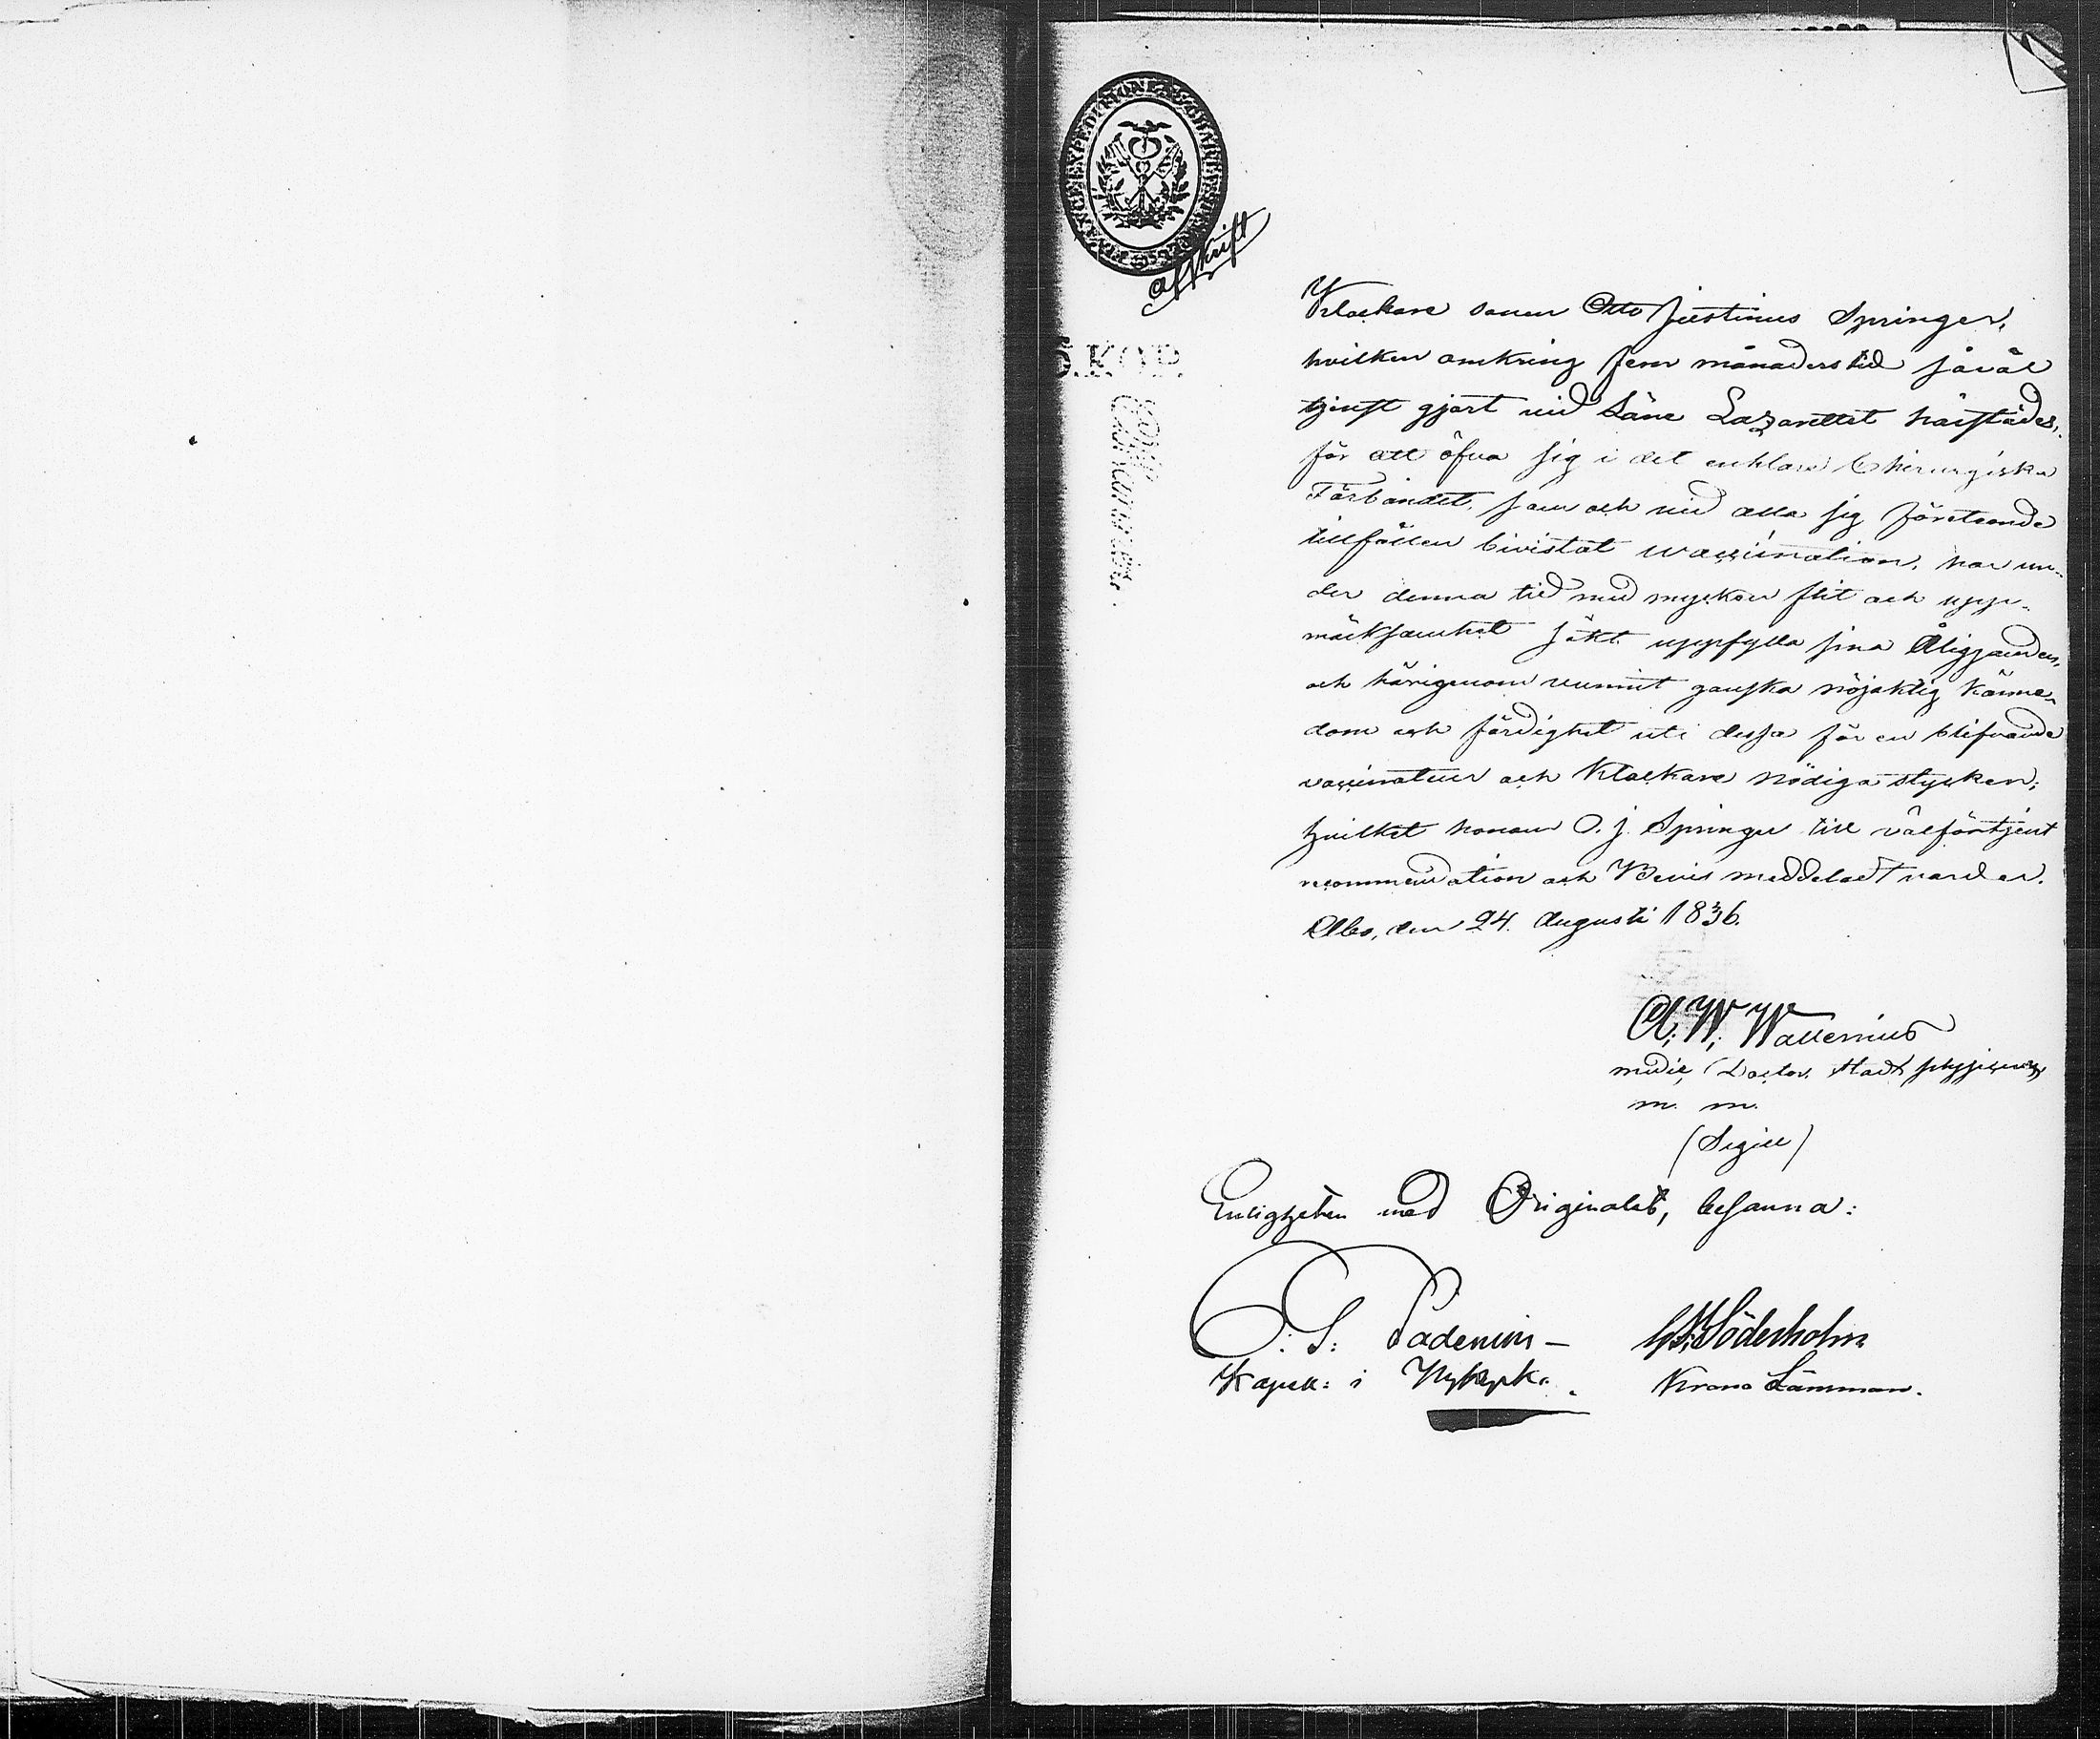 Afskrift
5.KOP.
Klockare sonen Otto Justinus Springer,
hvilken omkring fem månaders tid såväl
tjenst gjort vid Läne Lazarettet härstädes,
för att öfva sig i det enklare Chirurgiska
Förbandet, som och vid alla sig företeende
tillfällen bivistat waccination, har un-
der denna tid med mycken flit och upp-
märksamhet sökt uppfylla sina Åligganden,
och härigenom vunnit ganska nöjaktig känne-
dom och färdighet uti dessa för en blifvande
vaccinateur och Klockare nödiga stycken;
hvilket honom O. J. Springer till välförtjent
recommendation och Bevis meddeladt varder.
Åbo, den 24. Augusti 1836.
A: W: Wallenius
medic Doctor. Stads physicus
m. m.
(Sigill)
Enligheten med Originalet, besanna:
S: Padenius - Söderholm
Kapell: i Nykyrk. Krono Länsman.